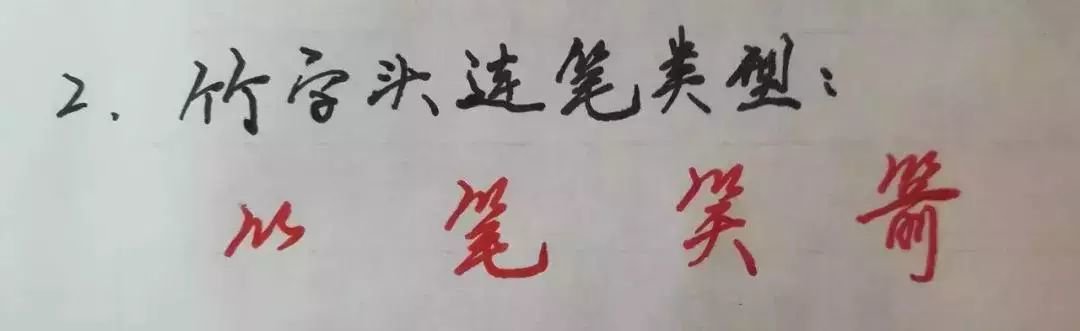 2. 竹字头连笔类型：
⺮ 笔 笑 箭